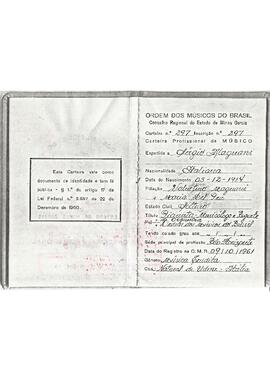 Esta Carteira vale como
documento de identidade e tem fé
pública - § 1.º do artigo 17 da
Lei Federal n.º 3.857 de 22 de
Dezembro de 1960.
ORDEM DOS MÚSICOS DO BRASIL
Conselho Regional do Estado de Minas Gerais
Carteira n.º 297 Inscrição n.º 297
Carteira Profissional de MÚSICO
Expedida a Sérgio Magnani
Nacionalidade Italiana
Data do Nascimento 03-12-1914
Filiação Valentino Magnani
e Maria
Estado Civil Solteiro
Título Pianista Musicólogo e Regente
Tendo colado grau aos
Sede principal da profissão Belo Horizonte
Data do Registro na O.M.B. 09/10/1961
Gênero Música Erudita
Obs. Natural de Udine - Itália